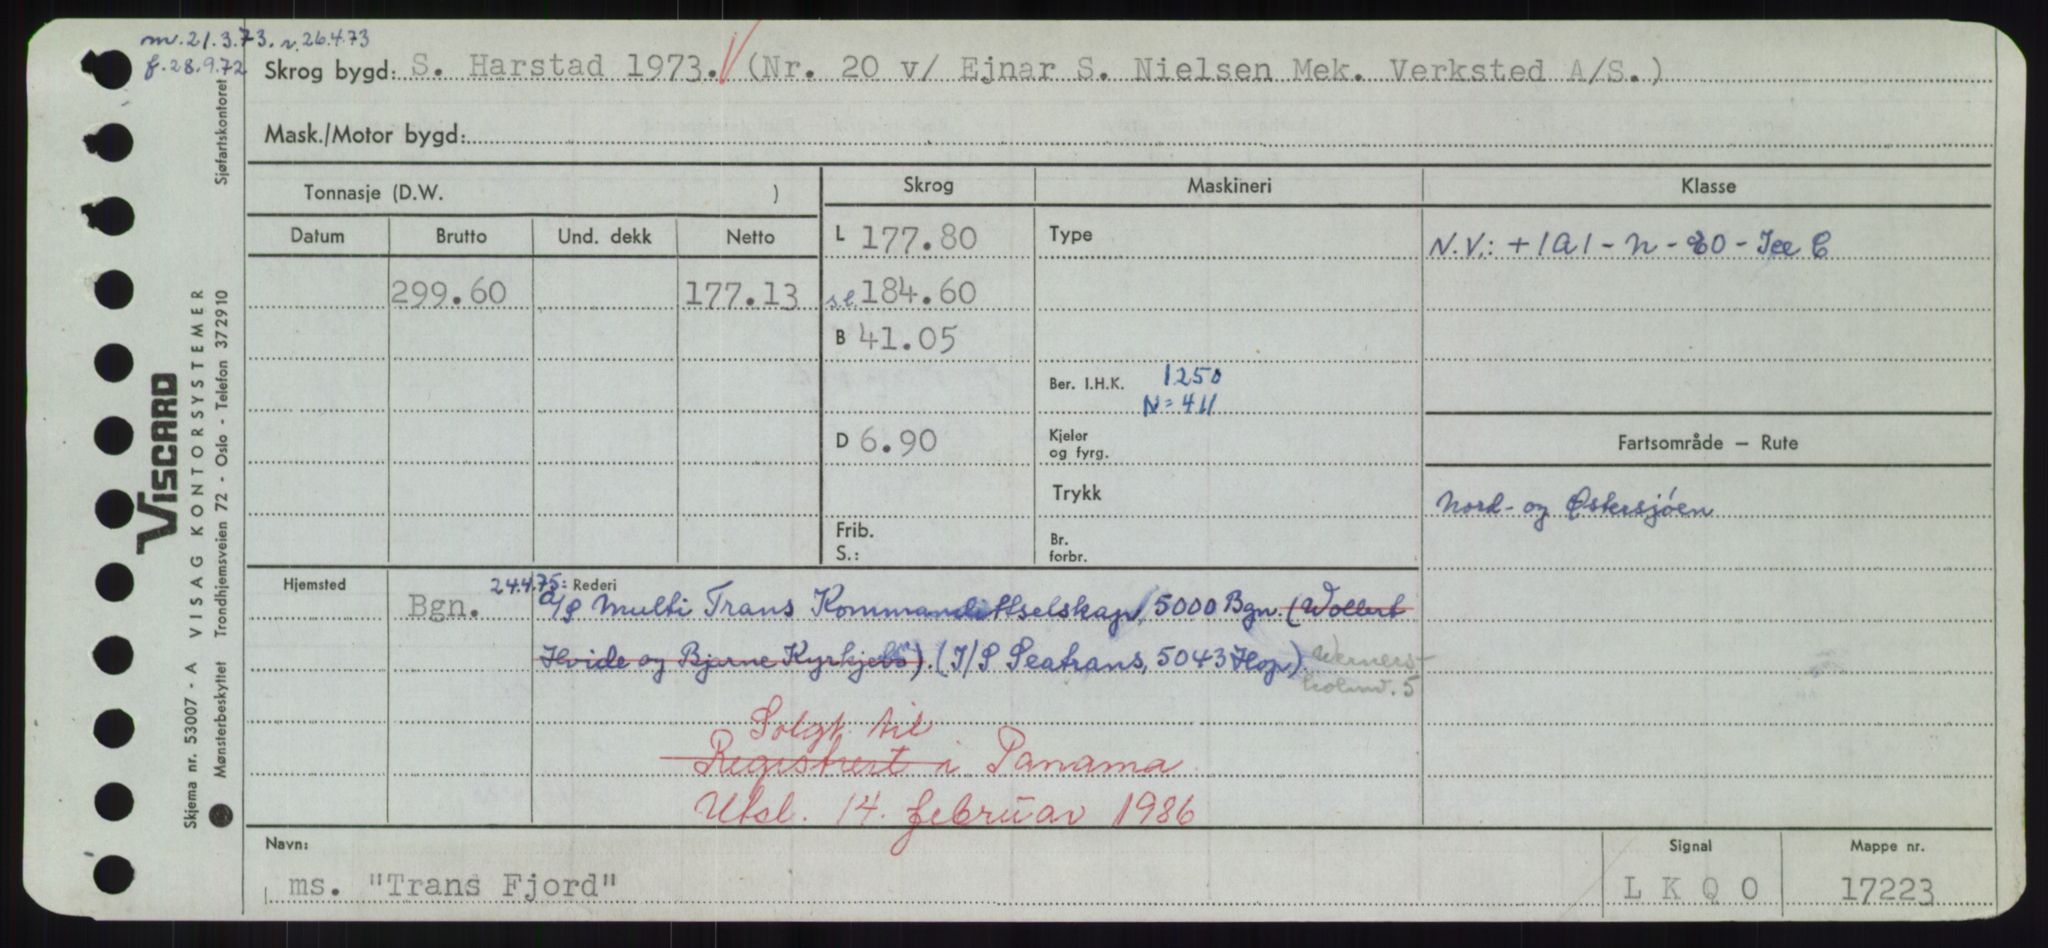 m.21.3.73. r.26.4.73
f.28.9.72
Skrog bygd: S. Harstad 1973. (Nr. 20 v/ Ejnar S. Nielsen Mek. Verksted A/S.)
Mask./Motor bygd:
Tonnasje (D.W. )
Skrog
Maskineri
Klasse
Datum Brutto Und. dekk Netto
L 177.80
Type
N.V.: +1A1 - N - - Ice C
299.60 177.13
s.l. 184.60
B 41.05
Ber. I.H.K. 1250
N = 411
D 6.90
Kjeler
og fyrg.
Fartsområde — Rute
Trykk
Nord- og Østersjøen
Frib.
S.:
Br.
forbr.
Hjemsted
Bgn.
24.4.75: Rederi
A/S Multi Trans Kommandittselskap, 5000 Bgn. (Wollert
Hvide og Bjarne Kyrkjebø). (I/S Seatrans, 5043 Hop) Werners-
holmv. 5
Solgt til
Registrert i Panama
Utsl. 14. februar 1986
Navn:
ms. "Trans Fjord"
Signal
L K Q O
Mappe nr.
17223
Sjøfartskontoret
VISCARD
VISAG KONTORSYSTEMER
Skjema nr. 53007 - A
Mønsterbeskyttet Trondhjemsveien 72 - Oslo - Telefon 372910